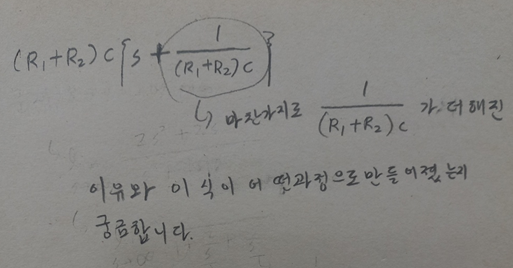 (R₁+R₂)C{s + 1/(R₁+R₂)C}
↳ 마찬가지로 1/(R₁+R₂)C 가 더해진
이유와 이 식이 어떳과정으로 만들어졌는지
궁금합니다.